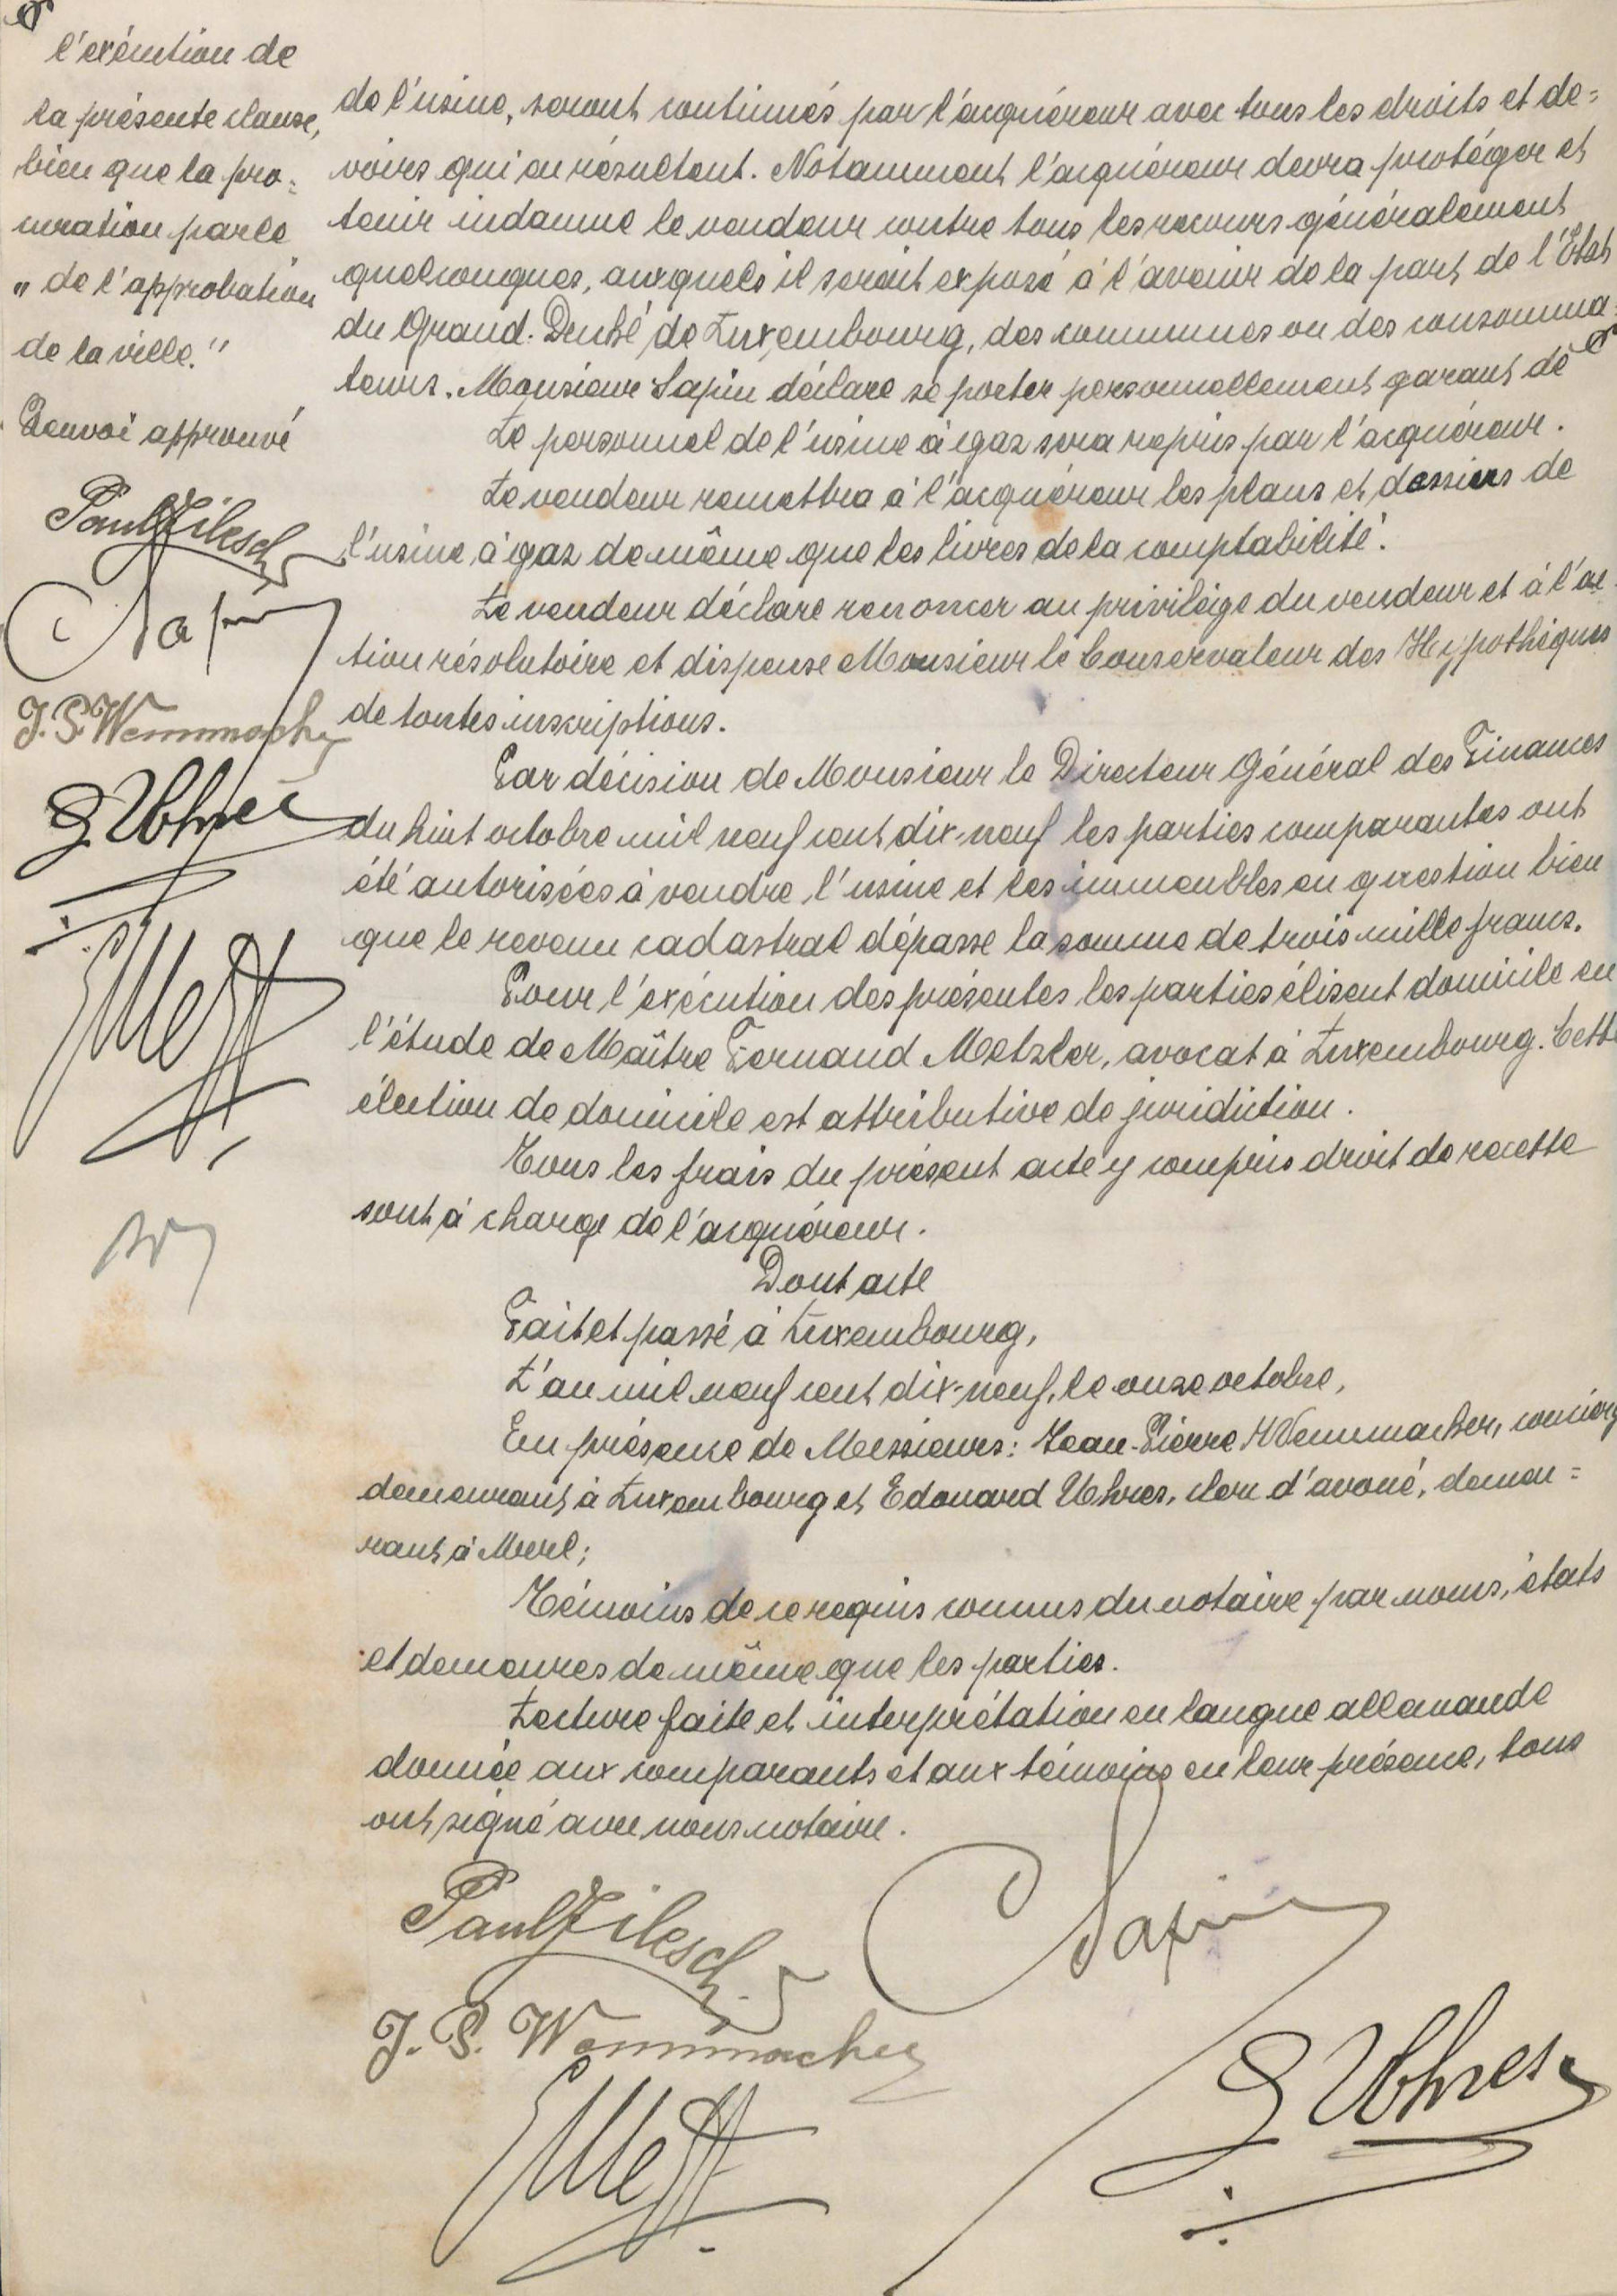 l'exécution de
la présente clause,
bien que la pro=
curation parle
"de l'approbation
de la ville."
Renvoi approuvé
Paul Zilesch
Sapin
J. P. Wennmacher
E Uhres
de l'usine, seront continués par l'acquéreur avec tous les droits et de=
voirs qui en résultent. Notamment l'acquéreur devra protéger et
tenir indemne le vendeur contre tous les recours généralement
quelconques, auxquels il serait exposé à l'avenir de la part de l'Etat
du Grand-Duché de Luxembourg, des communes ou des consomma=
teurs. Monsieur Sapin déclare se porter personnellement garant de
Le personnel de l'usine à gaz sera repris par l'acquéreur.
Le vendeur remettra à l'acquéreur les plans et dossiers de
l'usine à gaz de même que les livres de la comptabilité.
Le vendeur déclare renoncer au privilège du vendeur et à l'ac=
tion résolutoire et dispense Monsieur le Conservateur des Hypothèques
de toutes inscriptions.
Par décision de Monsieur le Directeur Général des Finances
du huit octobre mil neuf cent dix-neuf les parties comparantes ont
été autorisées à vendre l'usine et les immeubles en question bien
que le revenu cadastral dépasse la somme de trois mille francs.
Pour l'exécution des présentes les parties élisent domicile en
l'étude de Maître Fernand Metzler, avocat à Luxembourg. Cette
élection de domicile est attributive de juridiction.
Tous les frais du présent acte y compris droit de recette
sont à charge de l'acquéreur.
Dont acte
Fait et passé à Luxembourg,
L'an mil neuf cent dix-neuf, le onze octobre,
En présence de Messieurs: Jean-Pierre Wennmacher, concierg
demeurant à Luxembourg et Edouard Uhres, clerc d'avoué, demeu=
rant à Merl;
Témoins de ce requis connus du notaire par noms, états
et demeures de même que les parties.
Lecture faite et interprétation en langue allemande
donnée aux comparants et aux témoins en leur présence, tous
ont signé avec nous notaire.
Paul Zilesch
Sapin
J. P. Wennmacher
E Uhres